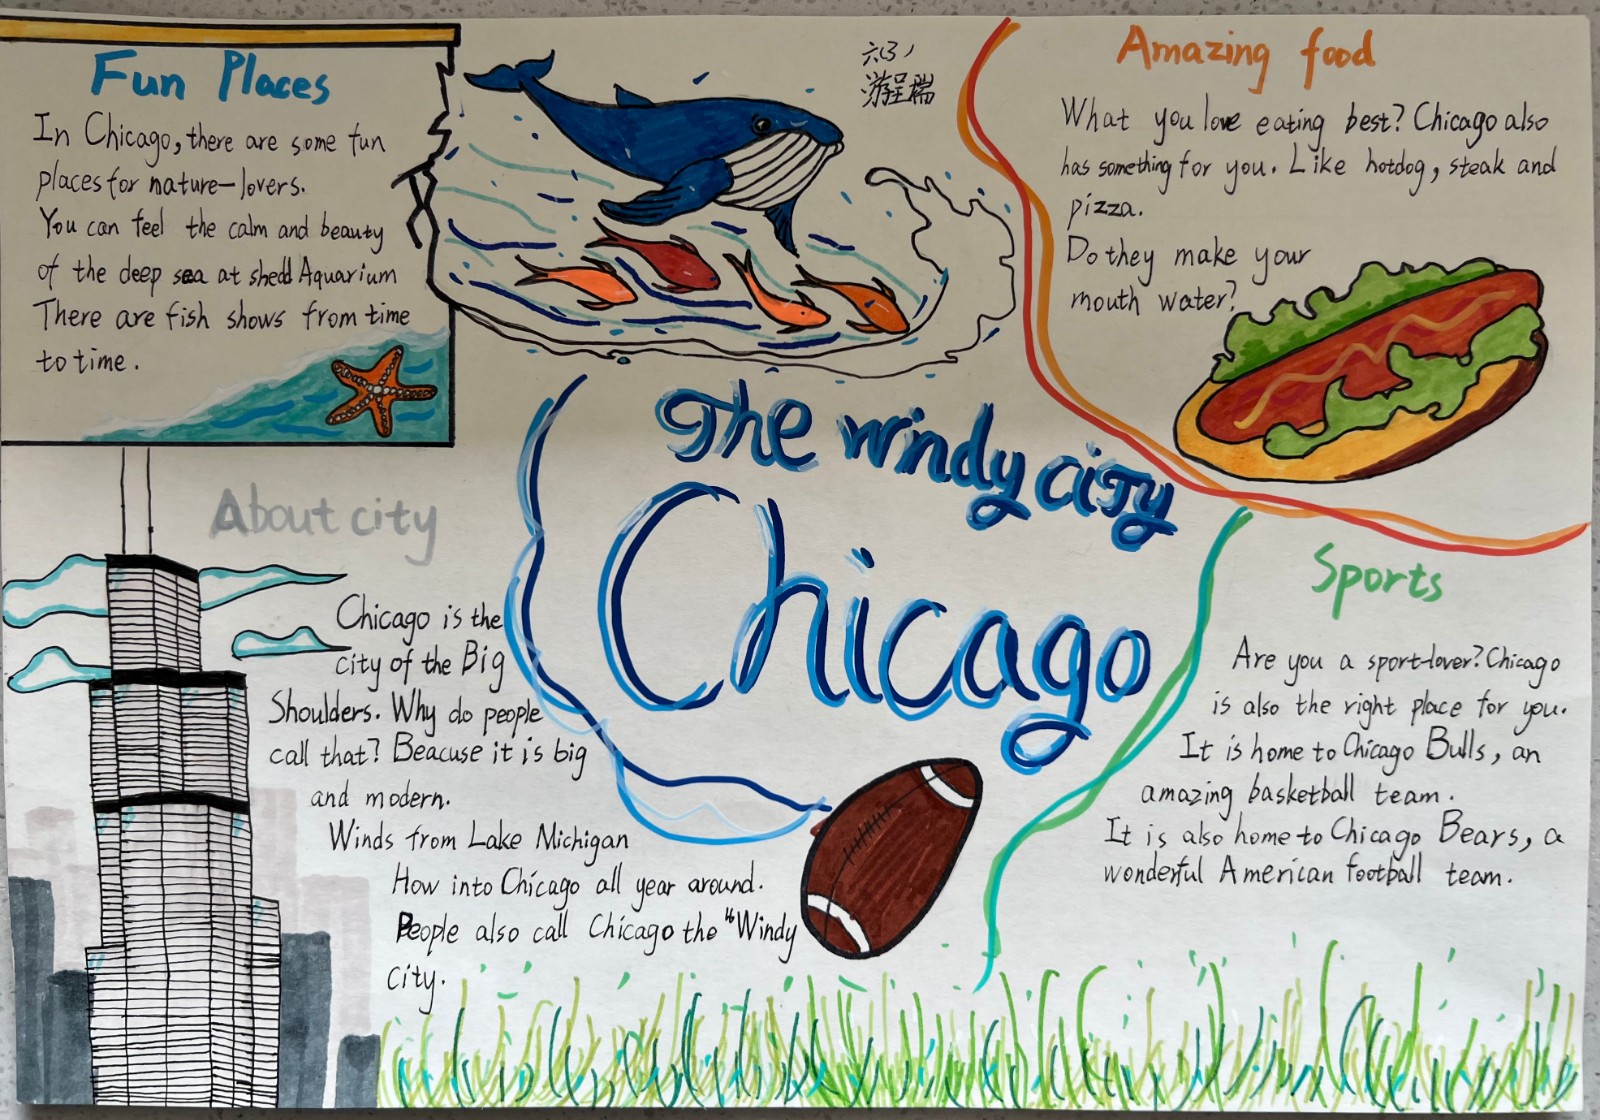 Fun Places
In Chicago, there are some fun
places for nature-lovers.
You can feel the calm and beauty
of the deep sea at shedd Aquarium
There are fish shows from time
to time.
六(3)
游呈瑞
Amazing food
What you love eating best? Chicago also
has something for you. Like hotdog, steak and
pizza.
Do they make your
mouth water?
The windy city
Chicago
About city
Chicago is the
city of the Big
Shoulders. Why do people
call that? Beacuse it is big
and modern.
Winds from Lake Michigan
How into Chicago all year around.
People also call Chicago the "Windy
city.
Sports
Are you a sport-lover? Chicago
is also the right place for you.
It is home to Chicago Bulls, an
amazing basketball team.
It is also home to Chicago Bears, a
wonderful American football team.